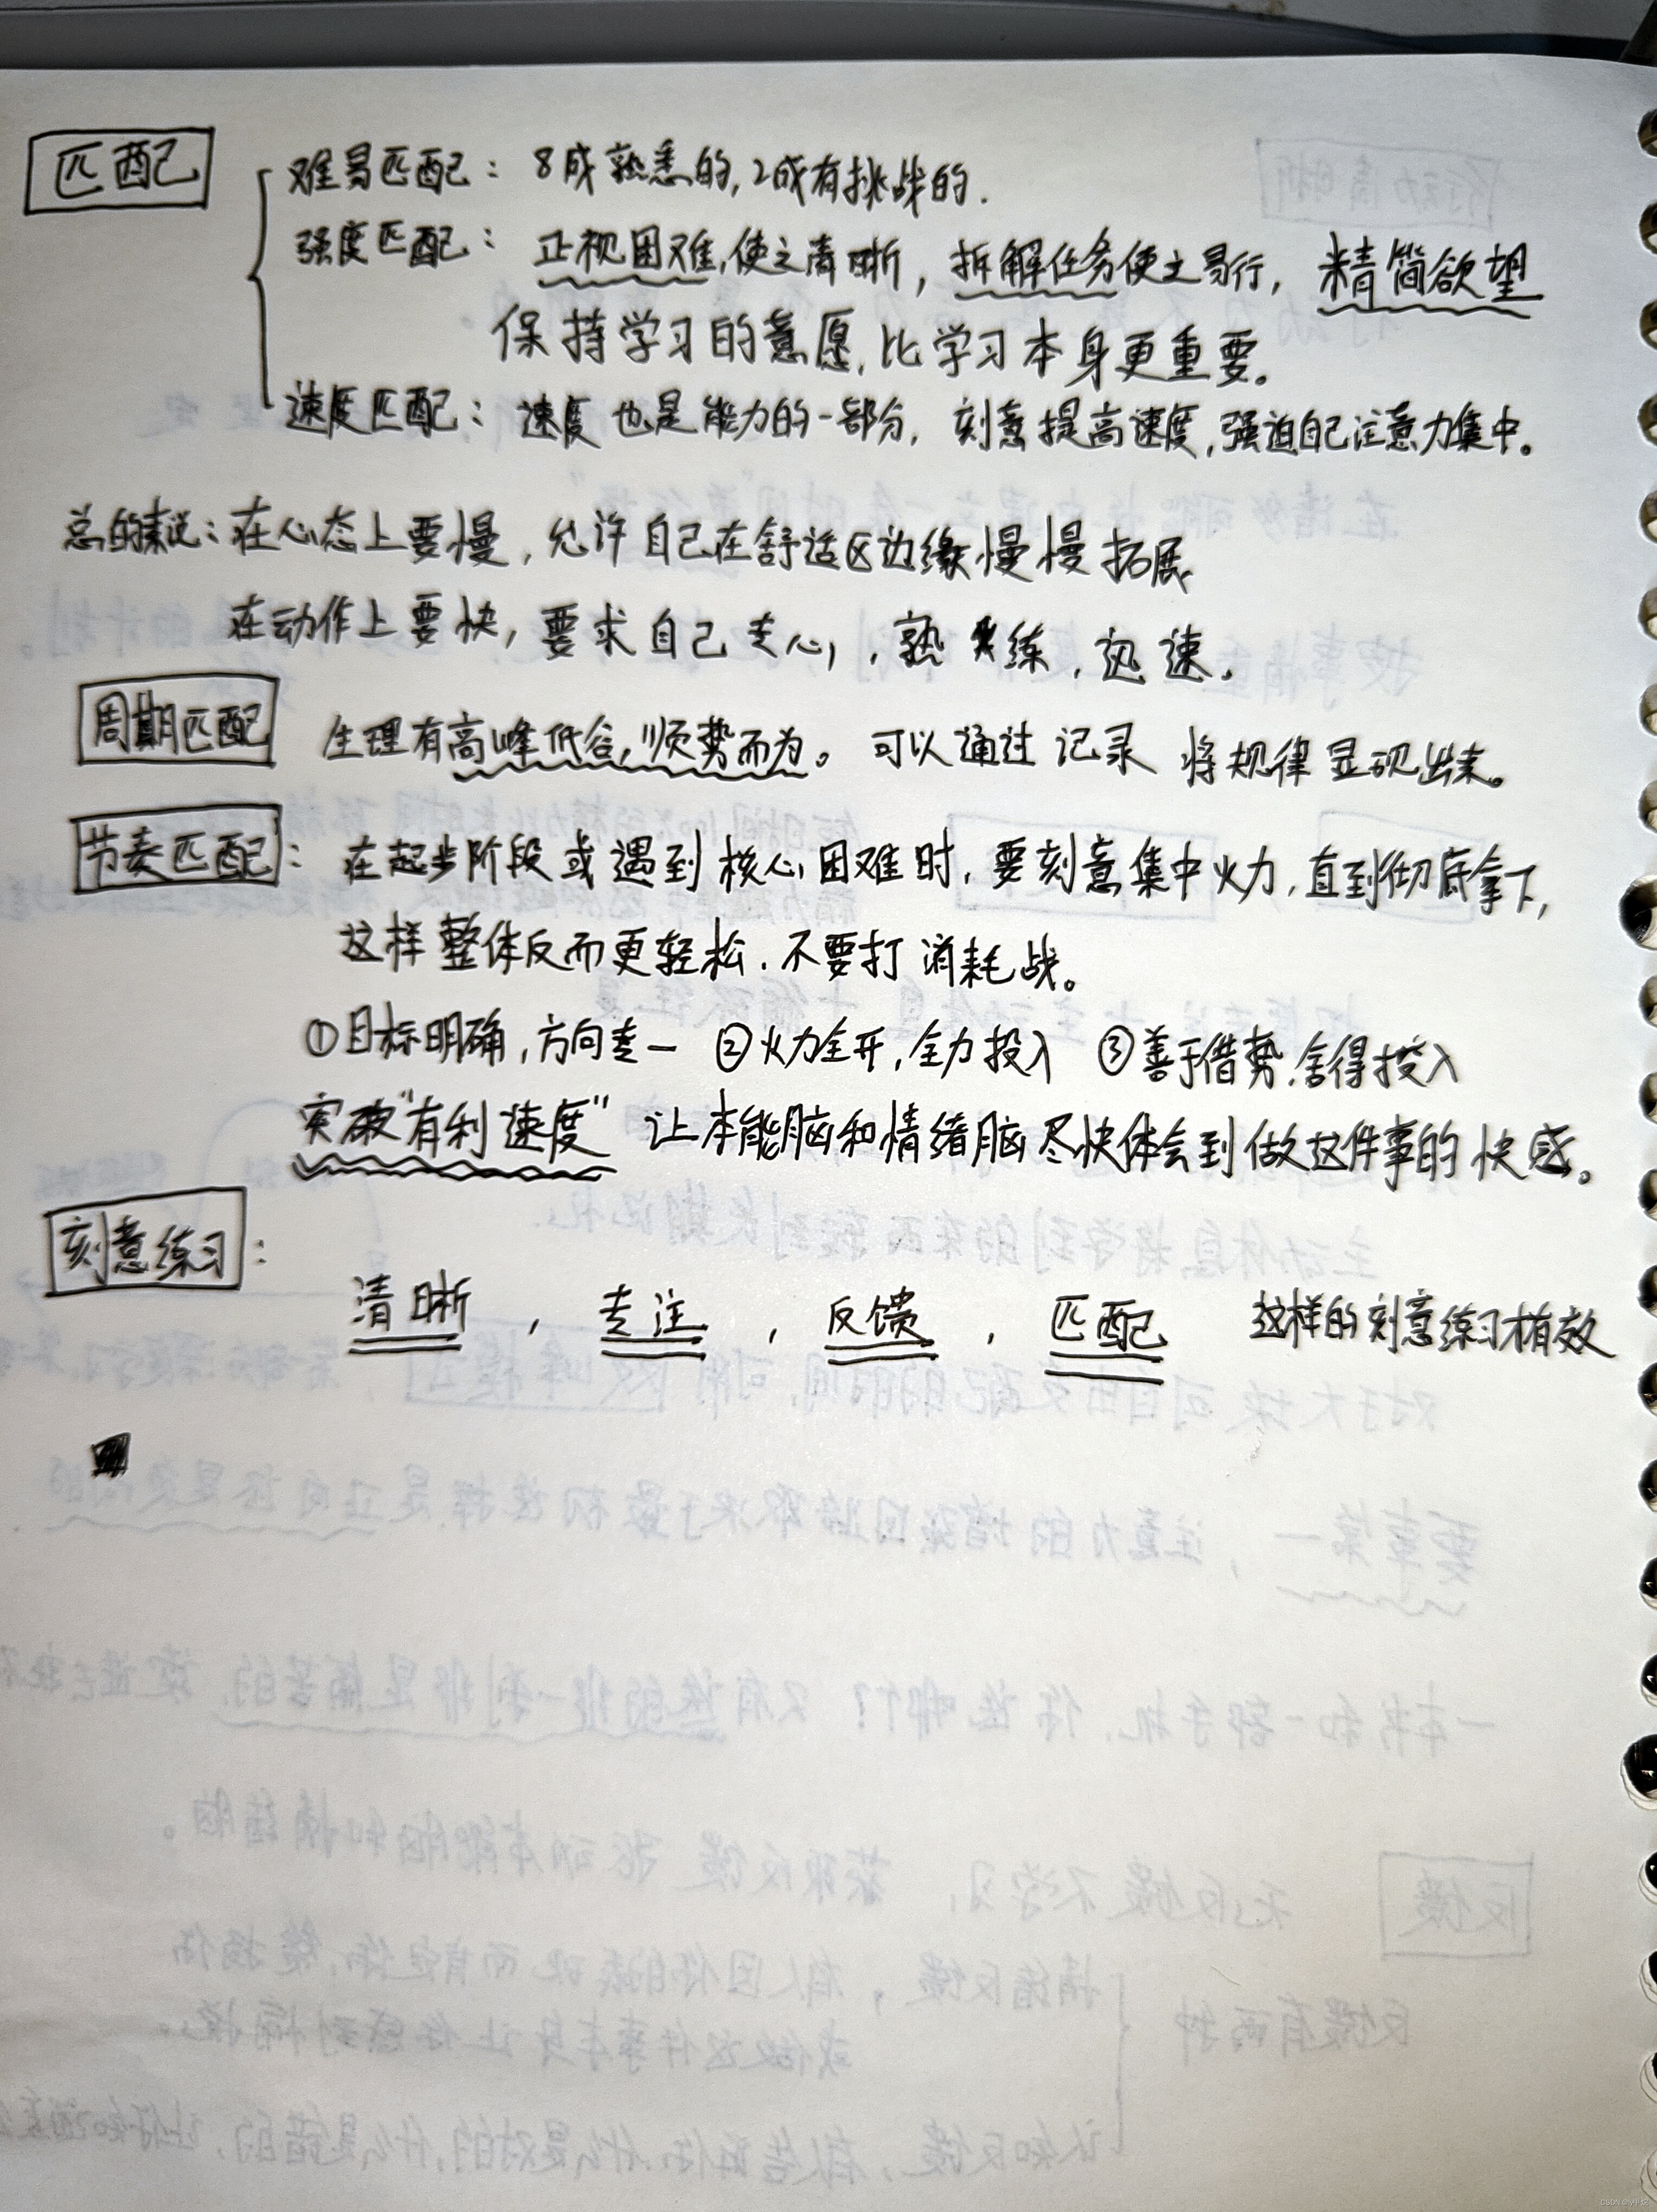 匹配
难易匹配：8成熟悉的，2成有挑战的．
强度匹配：正视困难，使之清晰，拆解任务使之易行，精简欲望
保持学习的意愿，比学习本身更重要。
速度匹配：速度也是能力的一部分，刻意提高速度，强迫自己注意力集中。
总的来说：在心态上要慢，允许自己在舒适区边缘慢慢拓展
在动作上要快，要求自己专心，熟练，迅速．
周期匹配 生理有高峰低谷，顺势而为。可以通过记录 将规律显现出来。
节奏匹配：在起步阶段或遇到核心困难时，要刻意集中火力，直到彻底拿下，
这样整体反而更轻松．不要打消耗战。
①目标明确，方向专一 ②火力全开，全力投入 ③善于借势，舍得投入
突破“有利速度” 让本能脑和情绪脑尽快体会到做这件事的快感。
刻意练习：
清晰，专注，反馈，匹配 这样的刻意练习才有效